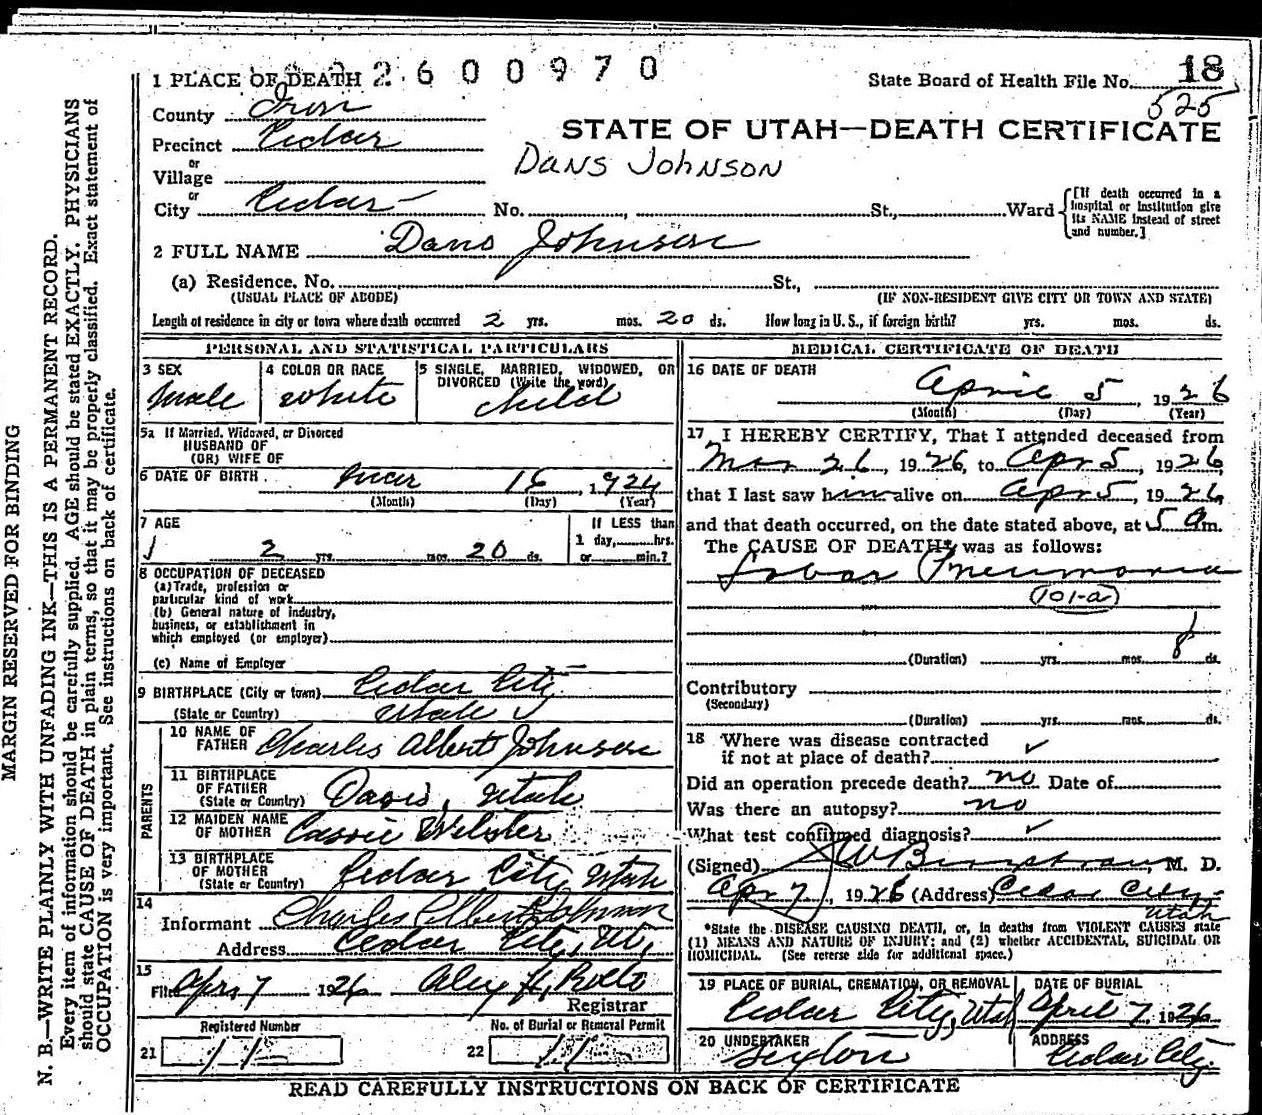 MARGIN RESERVED FOR BINDING
N. B.—WRITE PLAINLY WITH UNFADING INK—THIS IS A PERMANENT RECORD.
Every item of information should be carefully supplied. AGE should be stated EXACTLY. PHYSICIANS
should state CAUSE OF DEATH in plain terms, so that it may be properly classified. Exact statement of
OCCUPATION is very important. See instructions on back of certificate.
1 PLACE OF DEATH 2600970
State Board of Health File No. 18
525
County Iron
STATE OF UTAH—DEATH CERTIFICATE
Precinct Cedar
Dans Johnson
or
Village
or
City Cedar No. St., Ward
[If death occurred in a
hospital or institution give
its NAME instead of street
and number.]
2 FULL NAME Dans Johnson
(a) Residence. No. St.,
(USUAL PLACE OF ABODE) (IF NON-RESIDENT GIVE CITY OR TOWN AND STATE)
Length of residence in city or town where death occurred 2 yrs. mos. 20 ds. How long in U. S., if foreign birth? yrs. mos. ds.
PERSONAL AND STATISTICAL PARTICULARS
3 SEX
male
4 COLOR OR RACE
white
5 SINGLE, MARRIED, WIDOWED, OR
DIVORCED (Write the word)
child
5a If Married, Widowed, or Divorced
HUSBAND OF
(OR) WIFE OF
6 DATE OF BIRTH mar 16, 1924
(Month) (Day) (Year)
7 AGE
2 yrs. mos. 20 ds.
If LESS than
1 day, hrs.
or min.?
8 OCCUPATION OF DECEASED
(a) Trade, profession or
particular kind of work
(b) General nature of industry,
business, or establishment in
which employed (or employer)
(c) Name of Employer
9 BIRTHPLACE (City or town) Cedar City
(State or Country) Utah
PARENTS
10 NAME OF
FATHER Charles Albert Johnson
11 BIRTHPLACE
OF FATHER
(State or Country) Davis, Utah
12 MAIDEN NAME
OF MOTHER Cassie Webster
13 BIRTHPLACE
OF MOTHER
(State or Country) Cedar City Utah
14
Informant Charles Albert Johnson
Address Cedar City, Ut,
15
Filed Apr 7 1926 Alex H, Rollo
Registrar
Registered Number
21 11
No. of Burial or Removal Permit
22 11
MEDICAL CERTIFICATE OF DEATH
16 DATE OF DEATH
April 5, 1926
(Month) (Day) (Year)
17 I HEREBY CERTIFY, That I attended deceased from
Mar 26, 1926, to Apr 5, 1926,
that I last saw him alive on Apr 5, 1926
and that death occurred, on the date stated above, at 5 a m.
The CAUSE OF DEATH* was as follows:
Lobar Pneumonia
(101-a)
(Duration) yrs. mos. 8 ds.
Contributory
(Secondary)
(Duration) yrs. mos. ds.
18 Where was disease contracted
if not at place of death?
Did an operation precede death? no Date of
Was there an autopsy? no
What test confirmed diagnosis?
(Signed) M. D.
Apr 7, 1926 (Address) Cedar City
Utah
*State the DISEASE CAUSING DEATH, or, in deaths from VIOLENT CAUSES state
(1) MEANS AND NATURE OF INJURY; and (2) whether ACCIDENTAL, SUICIDAL OR
HOMICIDAL. (See reverse side for additional space.)
19 PLACE OF BURIAL, CREMATION, OR REMOVAL
Cedar City, Utah
DATE OF BURIAL
April 7, 1926
20 UNDERTAKER
Sexton
ADDRESS
Cedar City.
READ CAREFULLY INSTRUCTIONS ON BACK OF CERTIFICATE